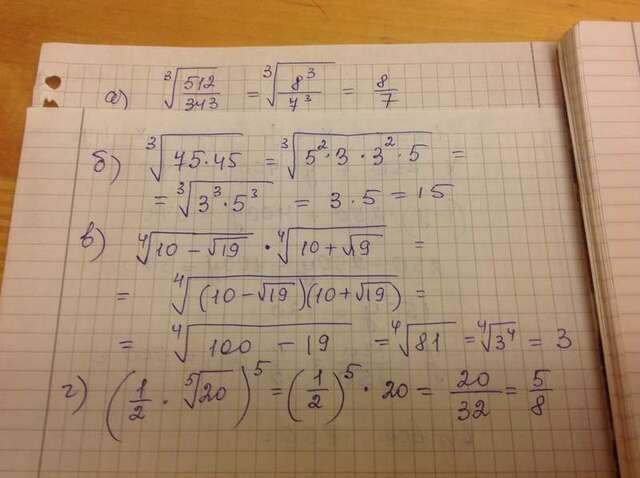 а) ∛(512/343) = ∛(8³/7³) = 8/7
б) ∛(75·45) = ∛(5²·3·3²·5) =
= ∛(3³·5³) = 3·5 = 15
в) ∜(10-√19) · ∜(10+√19) =
= ∜((10-√19)(10+√19)) =
= ∜(100-19) = ∜81 = ∜3⁴ = 3
г) (1/2 · ⁵√20)⁵ = (1/2)⁵ · 20 = 20/32 = 5/8